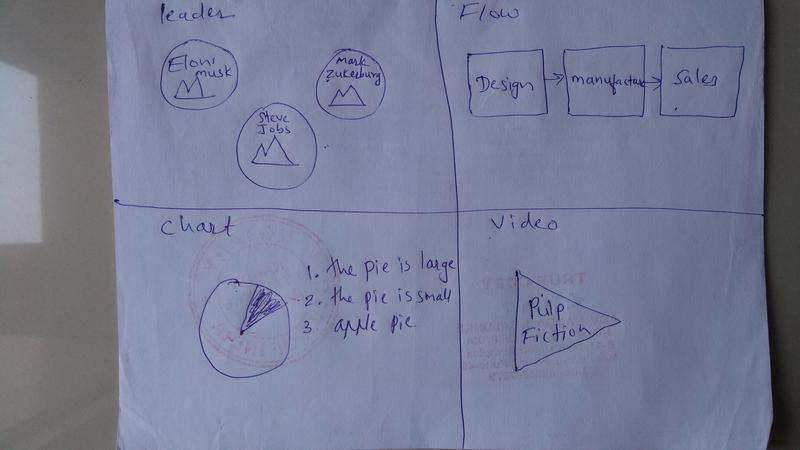 leader
Eloni
musk
mark
Zukerburg
Steve
Jobs
Flow
Design
manufacture
Sales
Chart
1. the pie is large
2. the pie is small
3. apple pie
Video
Pulp
Fiction
TRUE COPY